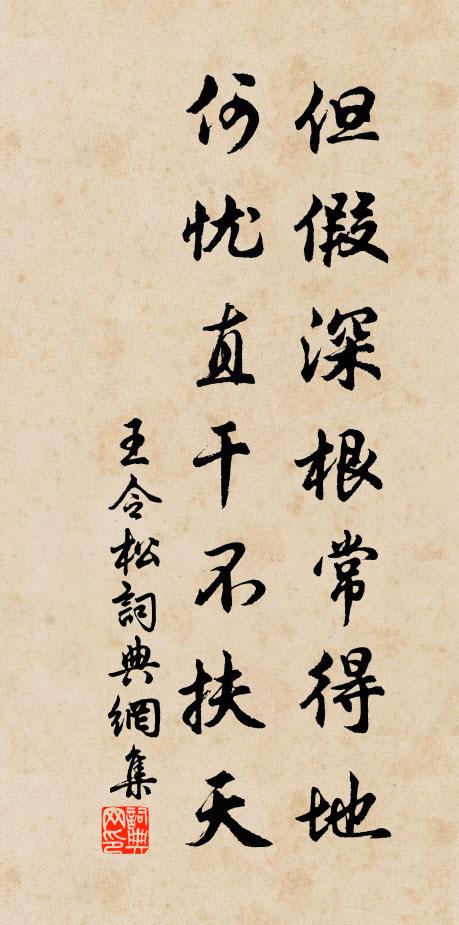 但假深根常得地
何忧直干不扶天
王令松詞典網集
詞典
网印